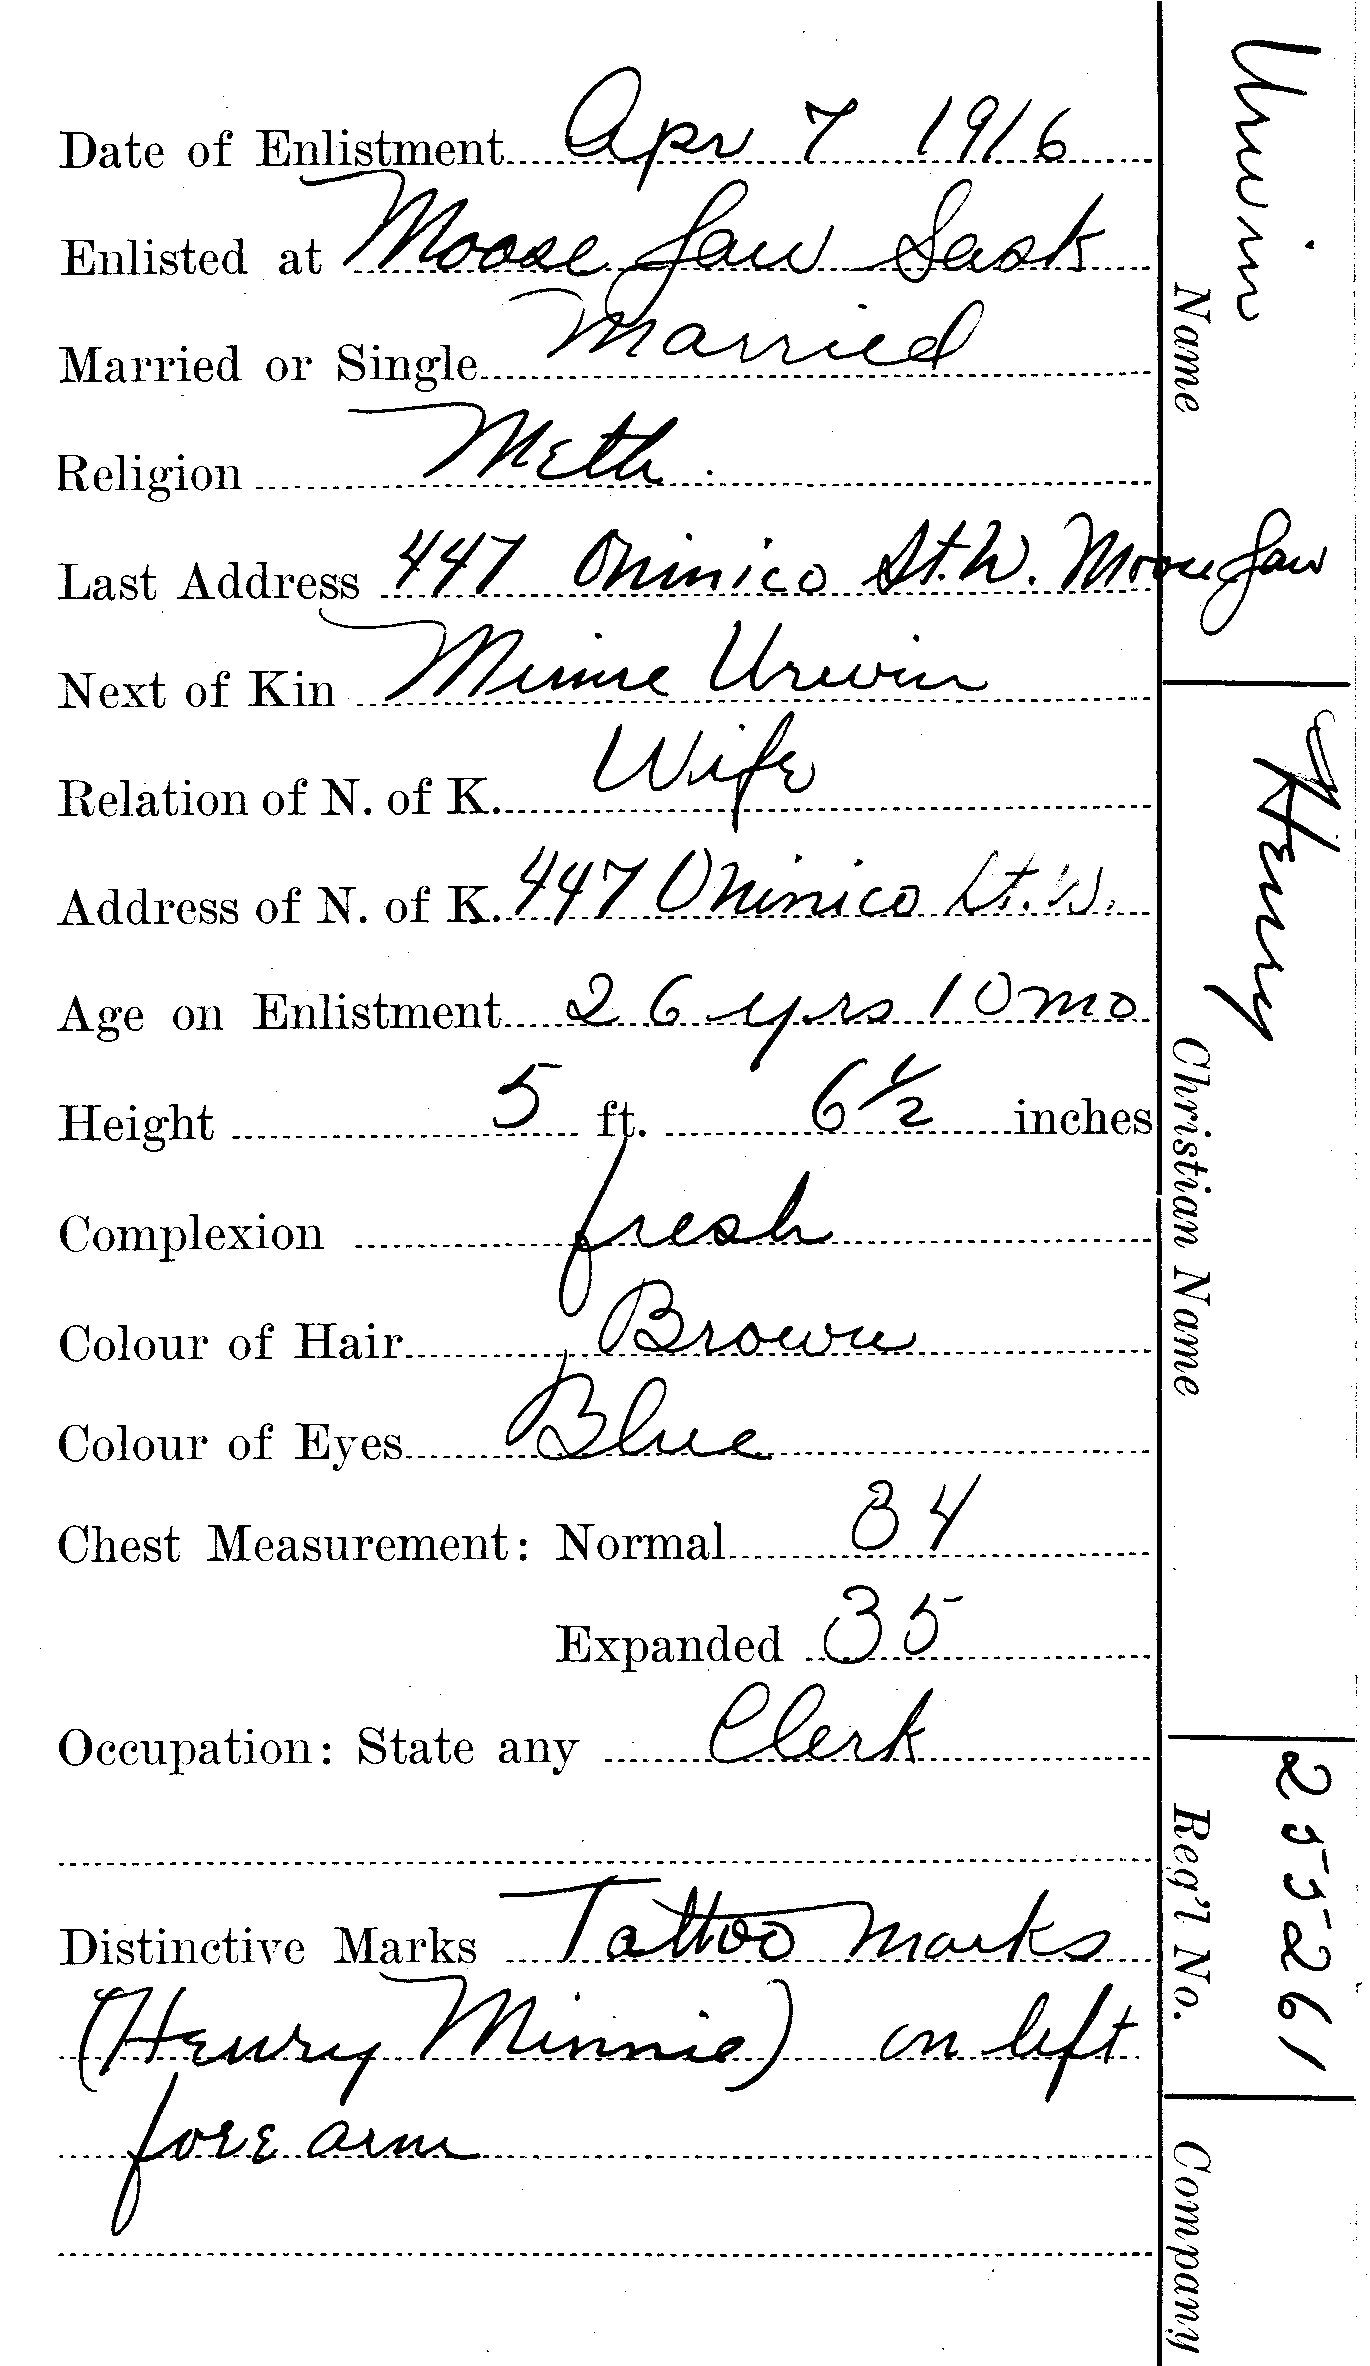 Date of Enlistment Apr 7 1916
Enlisted at Moose Jaw Sask
Married or Single Married
Religion Meth.
Last Address 447 Ominico St. W. Moose Jaw
Next of Kin Minnie Urwin
Relation of N. of K. Wife
Address of N. of K. 447 Ominico St. W.
Age on Enlistment 26 yrs 10 mo
Height 5 ft. 6 1/2 inches
Complexion fresh
Colour of Hair Brown
Colour of Eyes Blue
Chest Measurement: Normal 34
Expanded 35
Occupation: State any Clerk
Distinctive Marks Tattoo marks
(Henry Minnie) on left
fore arm
Urwin
Name
Henry
Christian Name
255261
Reg'l No.
Company